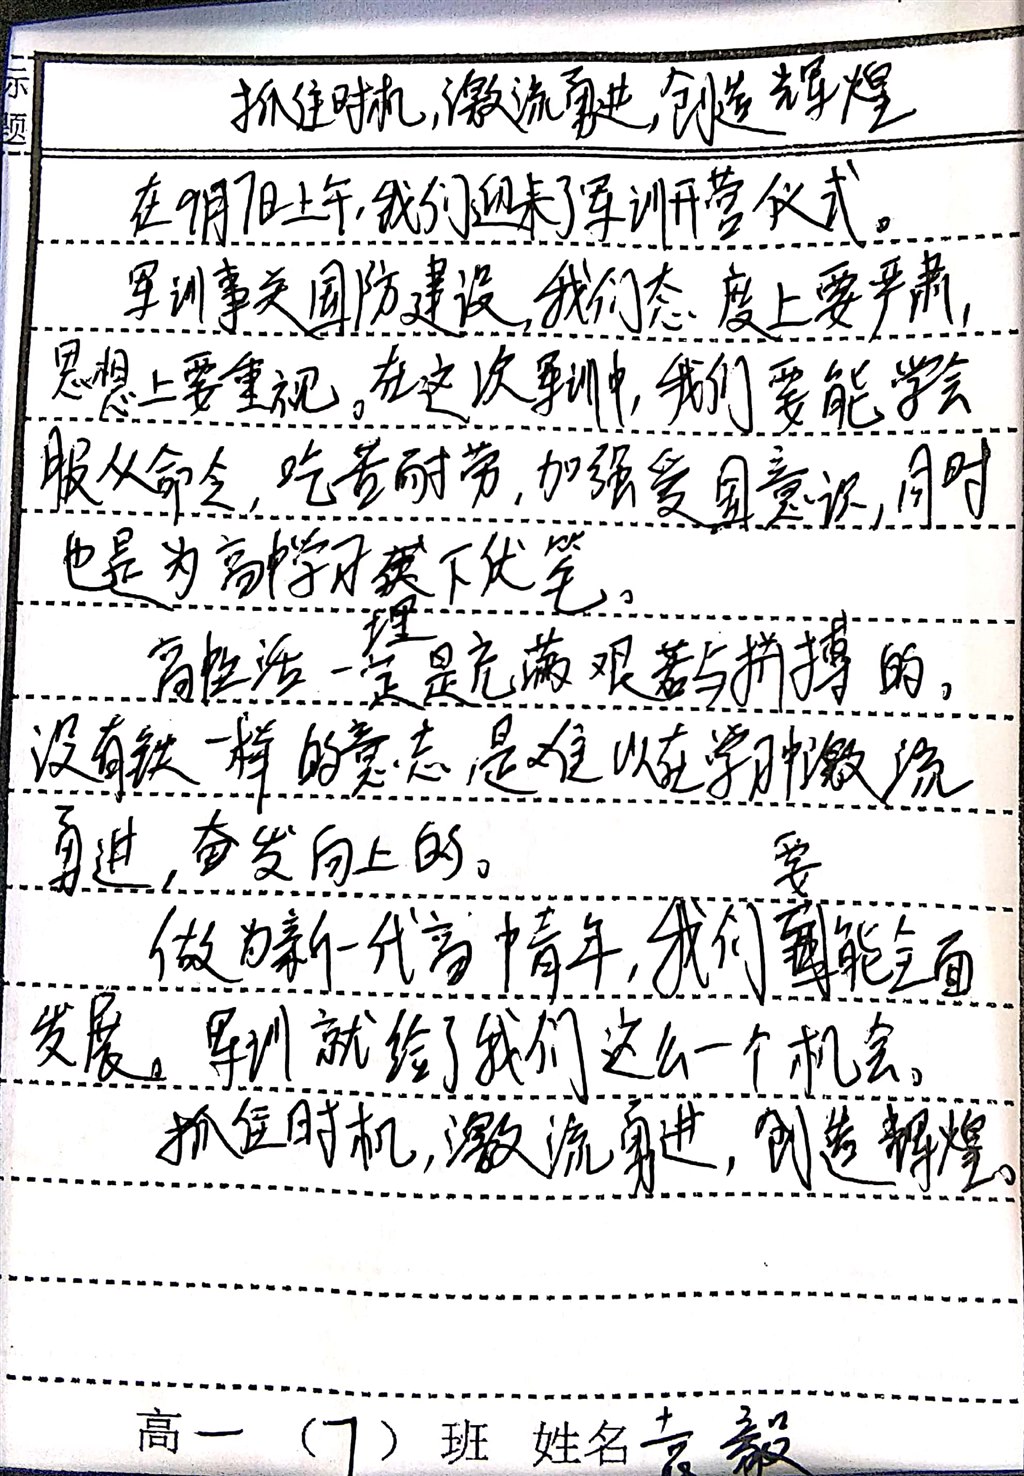 标题
抓住时机,激流勇进,创造辉煌
在9月7日上午,我们迎来了军训开营仪式。
军训事关国防建设,我们态度上要严肃,
思想上要重视。在这次军训中,我们要能学会
服从命令,吃苦耐劳,加强爱国意识,同时
也是为高中学习埋下伏笔。
高中生活一定是充满艰苦与拼搏的。
没有铁一样的意志,是难以在学习中激流
勇进,奋发向上的。
做为新一代高中青年,我们要能全面
发展。军训就给了我们这么一个机会。
抓住时机,激流勇进,创造辉煌。
高一(7)班 姓名袁毅